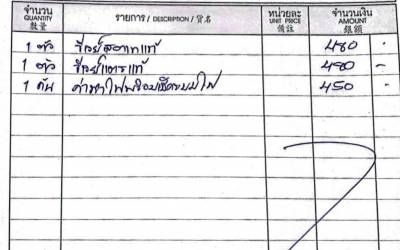 จำนวน รายการ / DESCRIPTION / 貨名 หน่วยละ จำนวนเงิน
QUANTITY UNIT PRICE AMOUNT
數量 備註 銀額
1 ตัว รีเลย์สตาทแท้ 480 -
1 ตัว รีเลย์แตรแท้ 480 -
1 คัน ค่าหาไฟพร้อมเช็คระบบไฟ 450 -